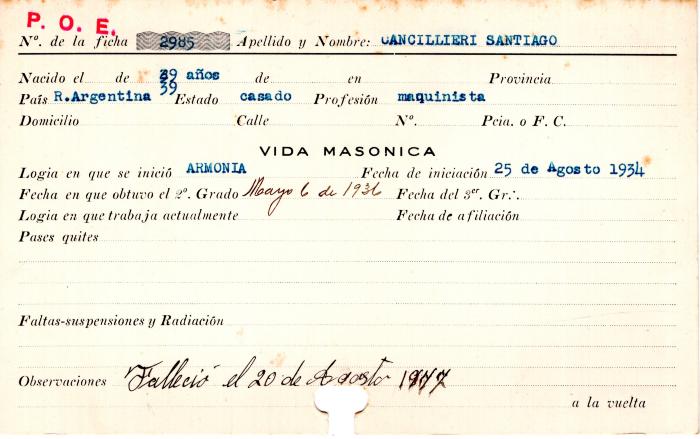 P. O. E.
Nº. de la ficha 2985 Apellido y Nombre: CANCILLIERI SANTIAGO
Nacido el de 39 años de en Provincia
39
País R.Argentina Estado casado Profesión maquinista
Domicilio Calle Nº. Pcia. o F. C.
VIDA MASONICA
Logia en que se inició ARMONIA Fecha de iniciación 25 de Agosto 1934
Fecha en que obtuvo el 2º. Grado Mayo 6 de 1936 Fecha del 3er. Gr∴.
Logia en que trabaja actualmente Fecha de afiliación
Pases quites
Faltas-suspensiones y Radiación
Observaciones Falleció el 20 de Agosto
a la vuelta